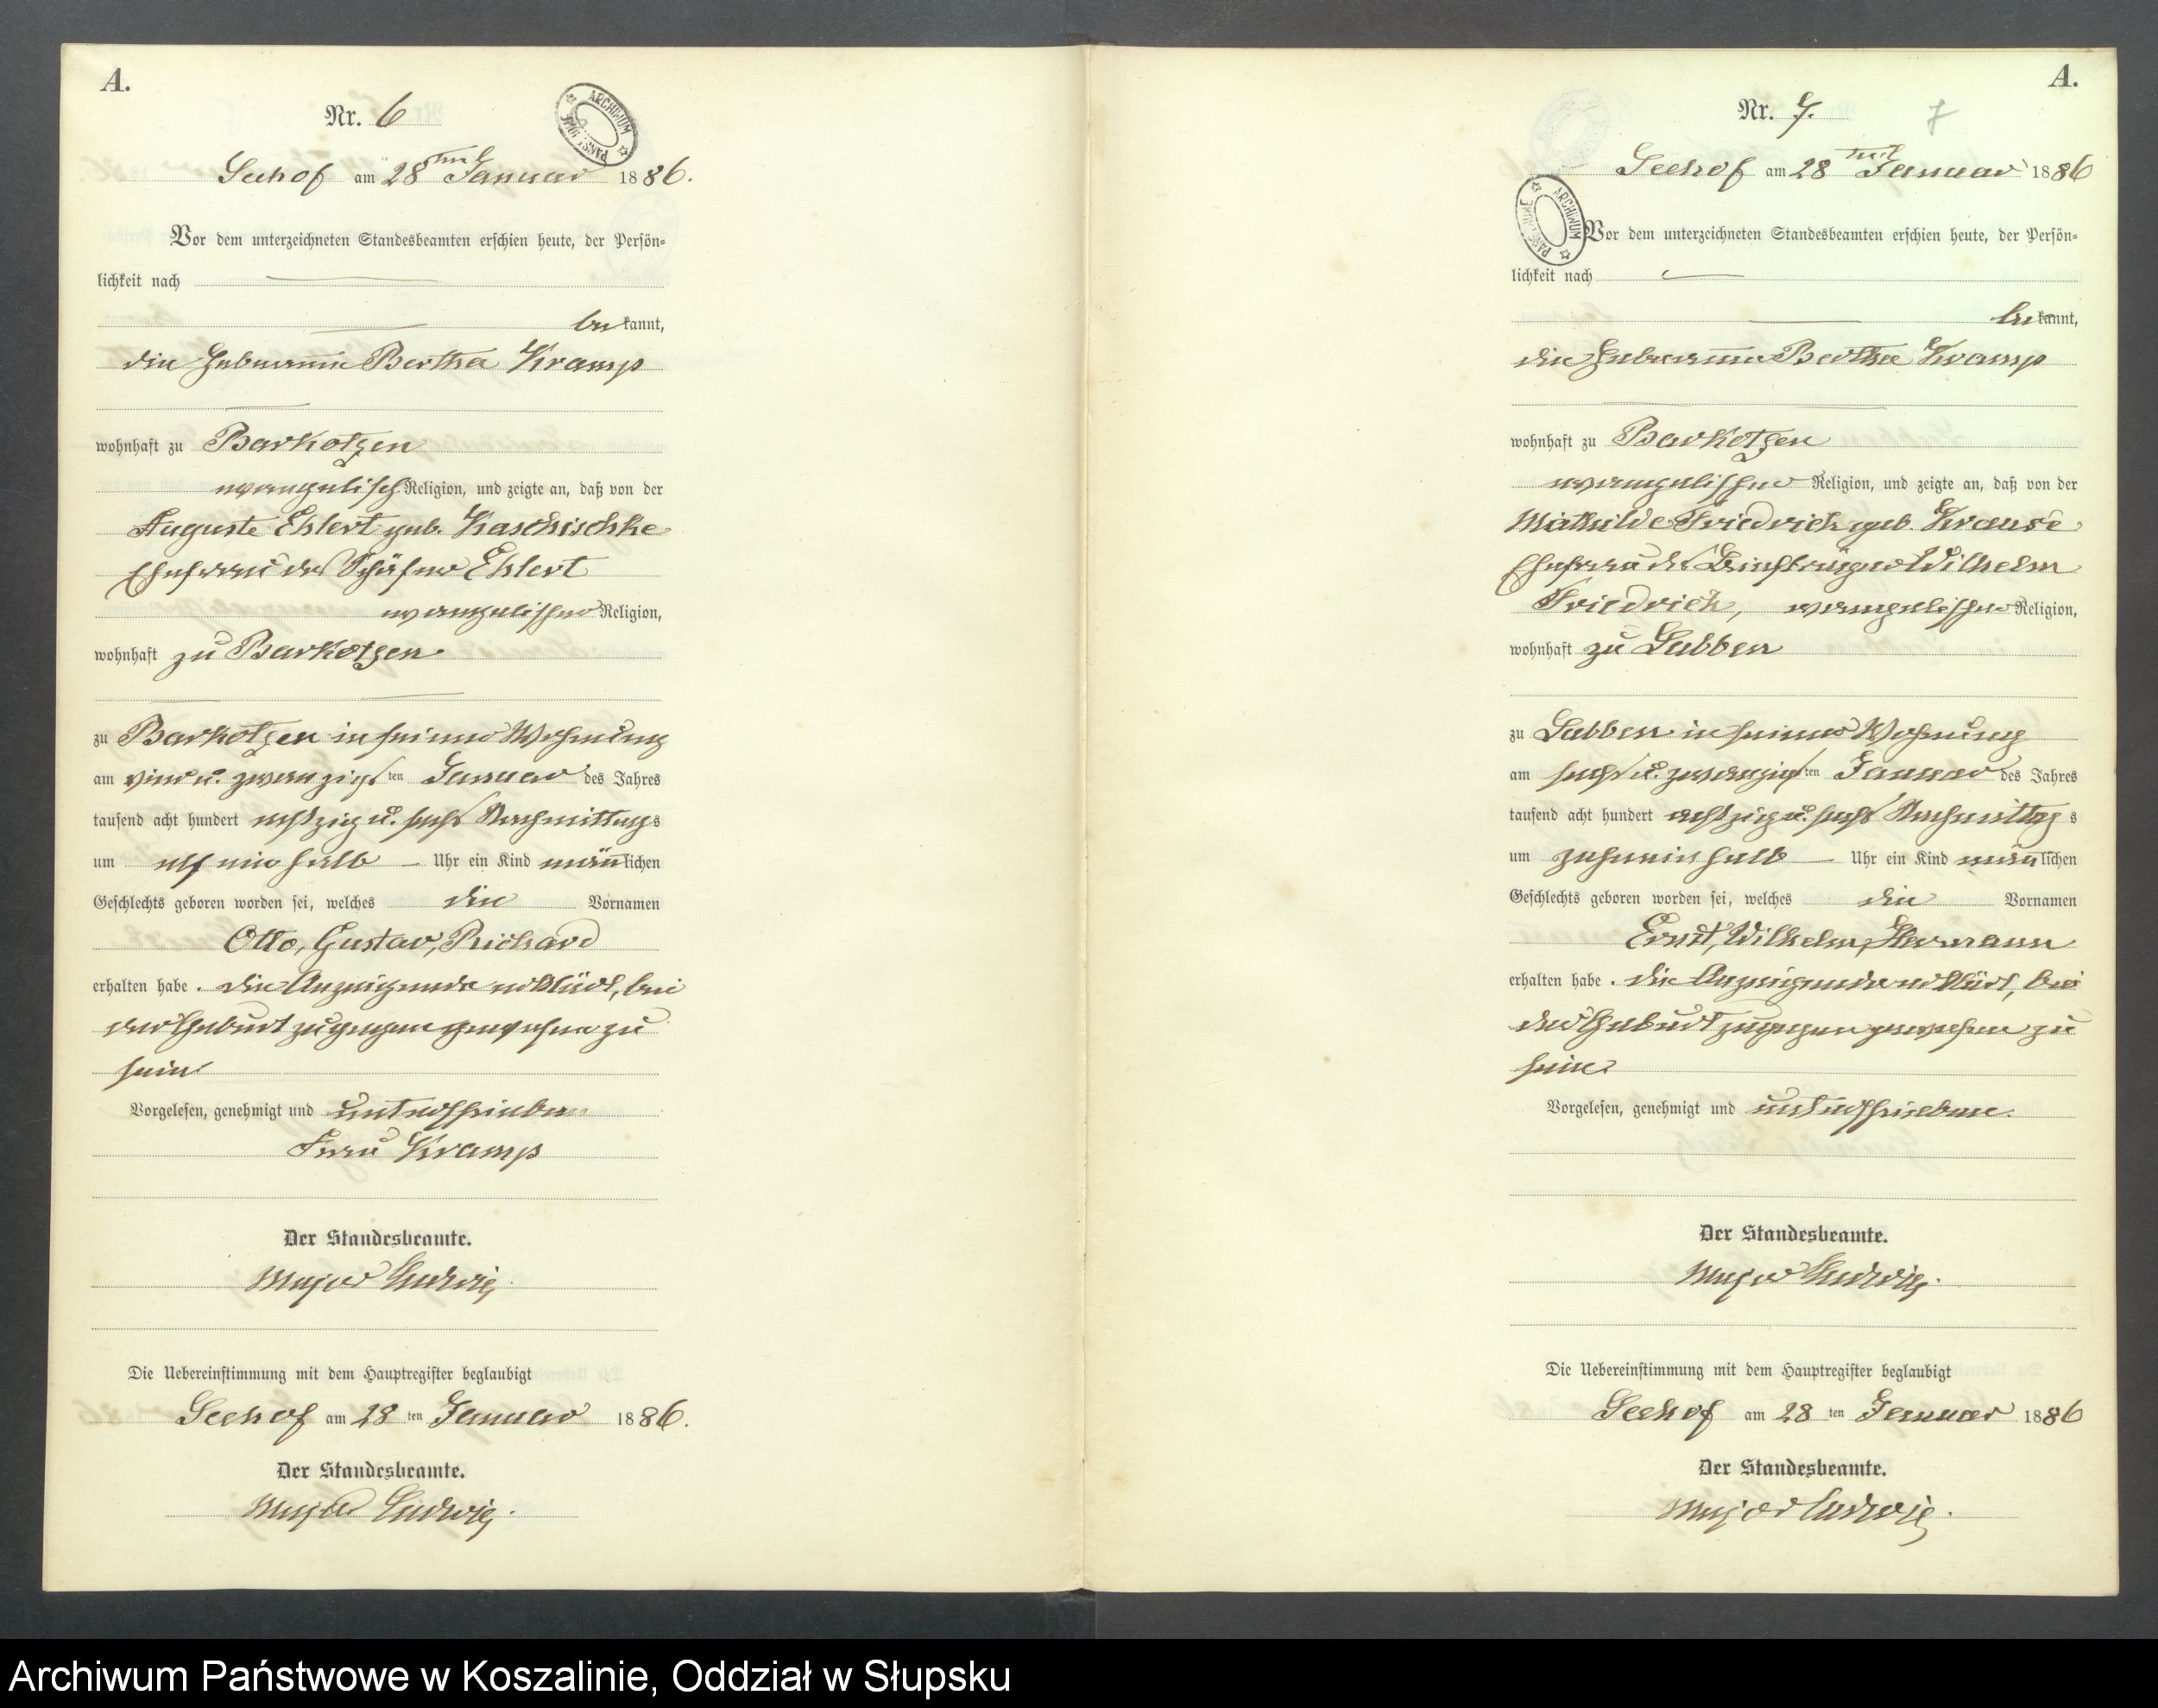 A.
Nr. 6
ARCHIWUM PAŃSTWOWE
Seehof am 28ten Januar 1886.
Vor dem unterzeichneten Standesbeamten erschien heute, der Persön=
lichkeit nach
bekannt,
die Hebamme Bertha Kramp
wohnhaft zu Barkotzen
evangelisch Religion, und zeigte an, daß von der
Auguste Ehlert geb. Kaschischke
Ehefrau des Schäfer Ehlert
evangelischer Religion,
wohnhaft zu Barkotzen
zu Barkotzen in seiner Wohnung
am vier u. zwanzigsten Januar des Jahres
tausend acht hundert achtzig u. sechs Nachmittags
um elf ein halb Uhr ein Kind männlichen
Geschlechts geboren worden sei, welches die Vornamen
Otto, Gustav, Richard
erhalten habe. die Anzeigende erklärt, bei
der Geburt zugegen gewesen zu
sein
Vorgelesen, genehmigt und unterschrieben
Frau Kramp
Der Standesbeamte.
Major Ludwig.
Die Uebereinstimmung mit dem Hauptregister beglaubigt
Seehof am 28 ten Januar 1886.
Der Standesbeamte.
Major Ludwig.
A.
Nr. 7.
7
ARCHIWUM PAŃSTWOWE
Seehof am 28ten Januar 1886
Vor dem unterzeichneten Standesbeamten erschien heute, der Persön=
lichkeit nach
bekannt,
die Hebamme Bertha Kramp
wohnhaft zu Barkotzen
evangelischer Religion, und zeigte an, daß von der
Mathilde Friedrich geb. Krause
Ehefrau des Briefträger Wilhelm
Friedrich, evangelischer Religion,
wohnhaft zu Labben
zu Labben in seiner Wohnung
am sechs u. zwanzigsten Januar des Jahres
tausend acht hundert achtzig u. sechs Nachmittags
um zehn ein halb Uhr ein Kind mänlichen
Geschlechts geboren worden sei, welches die Vornamen
Ernst, Wilhelm, Hermann
erhalten habe. die Anzeigende erklärt, bei
der Geburt zugegen gewesen zu
sein
Vorgelesen, genehmigt und unterschrieben.
Der Standesbeamte.
Major Ludwig.
Die Uebereinstimmung mit dem Hauptregister beglaubigt
Seehof am 28 ten Januar 1886
Der Standesbeamte.
Major Ludwig.
Archiwum Państwowe w Koszalinie, Oddział w Słupsku